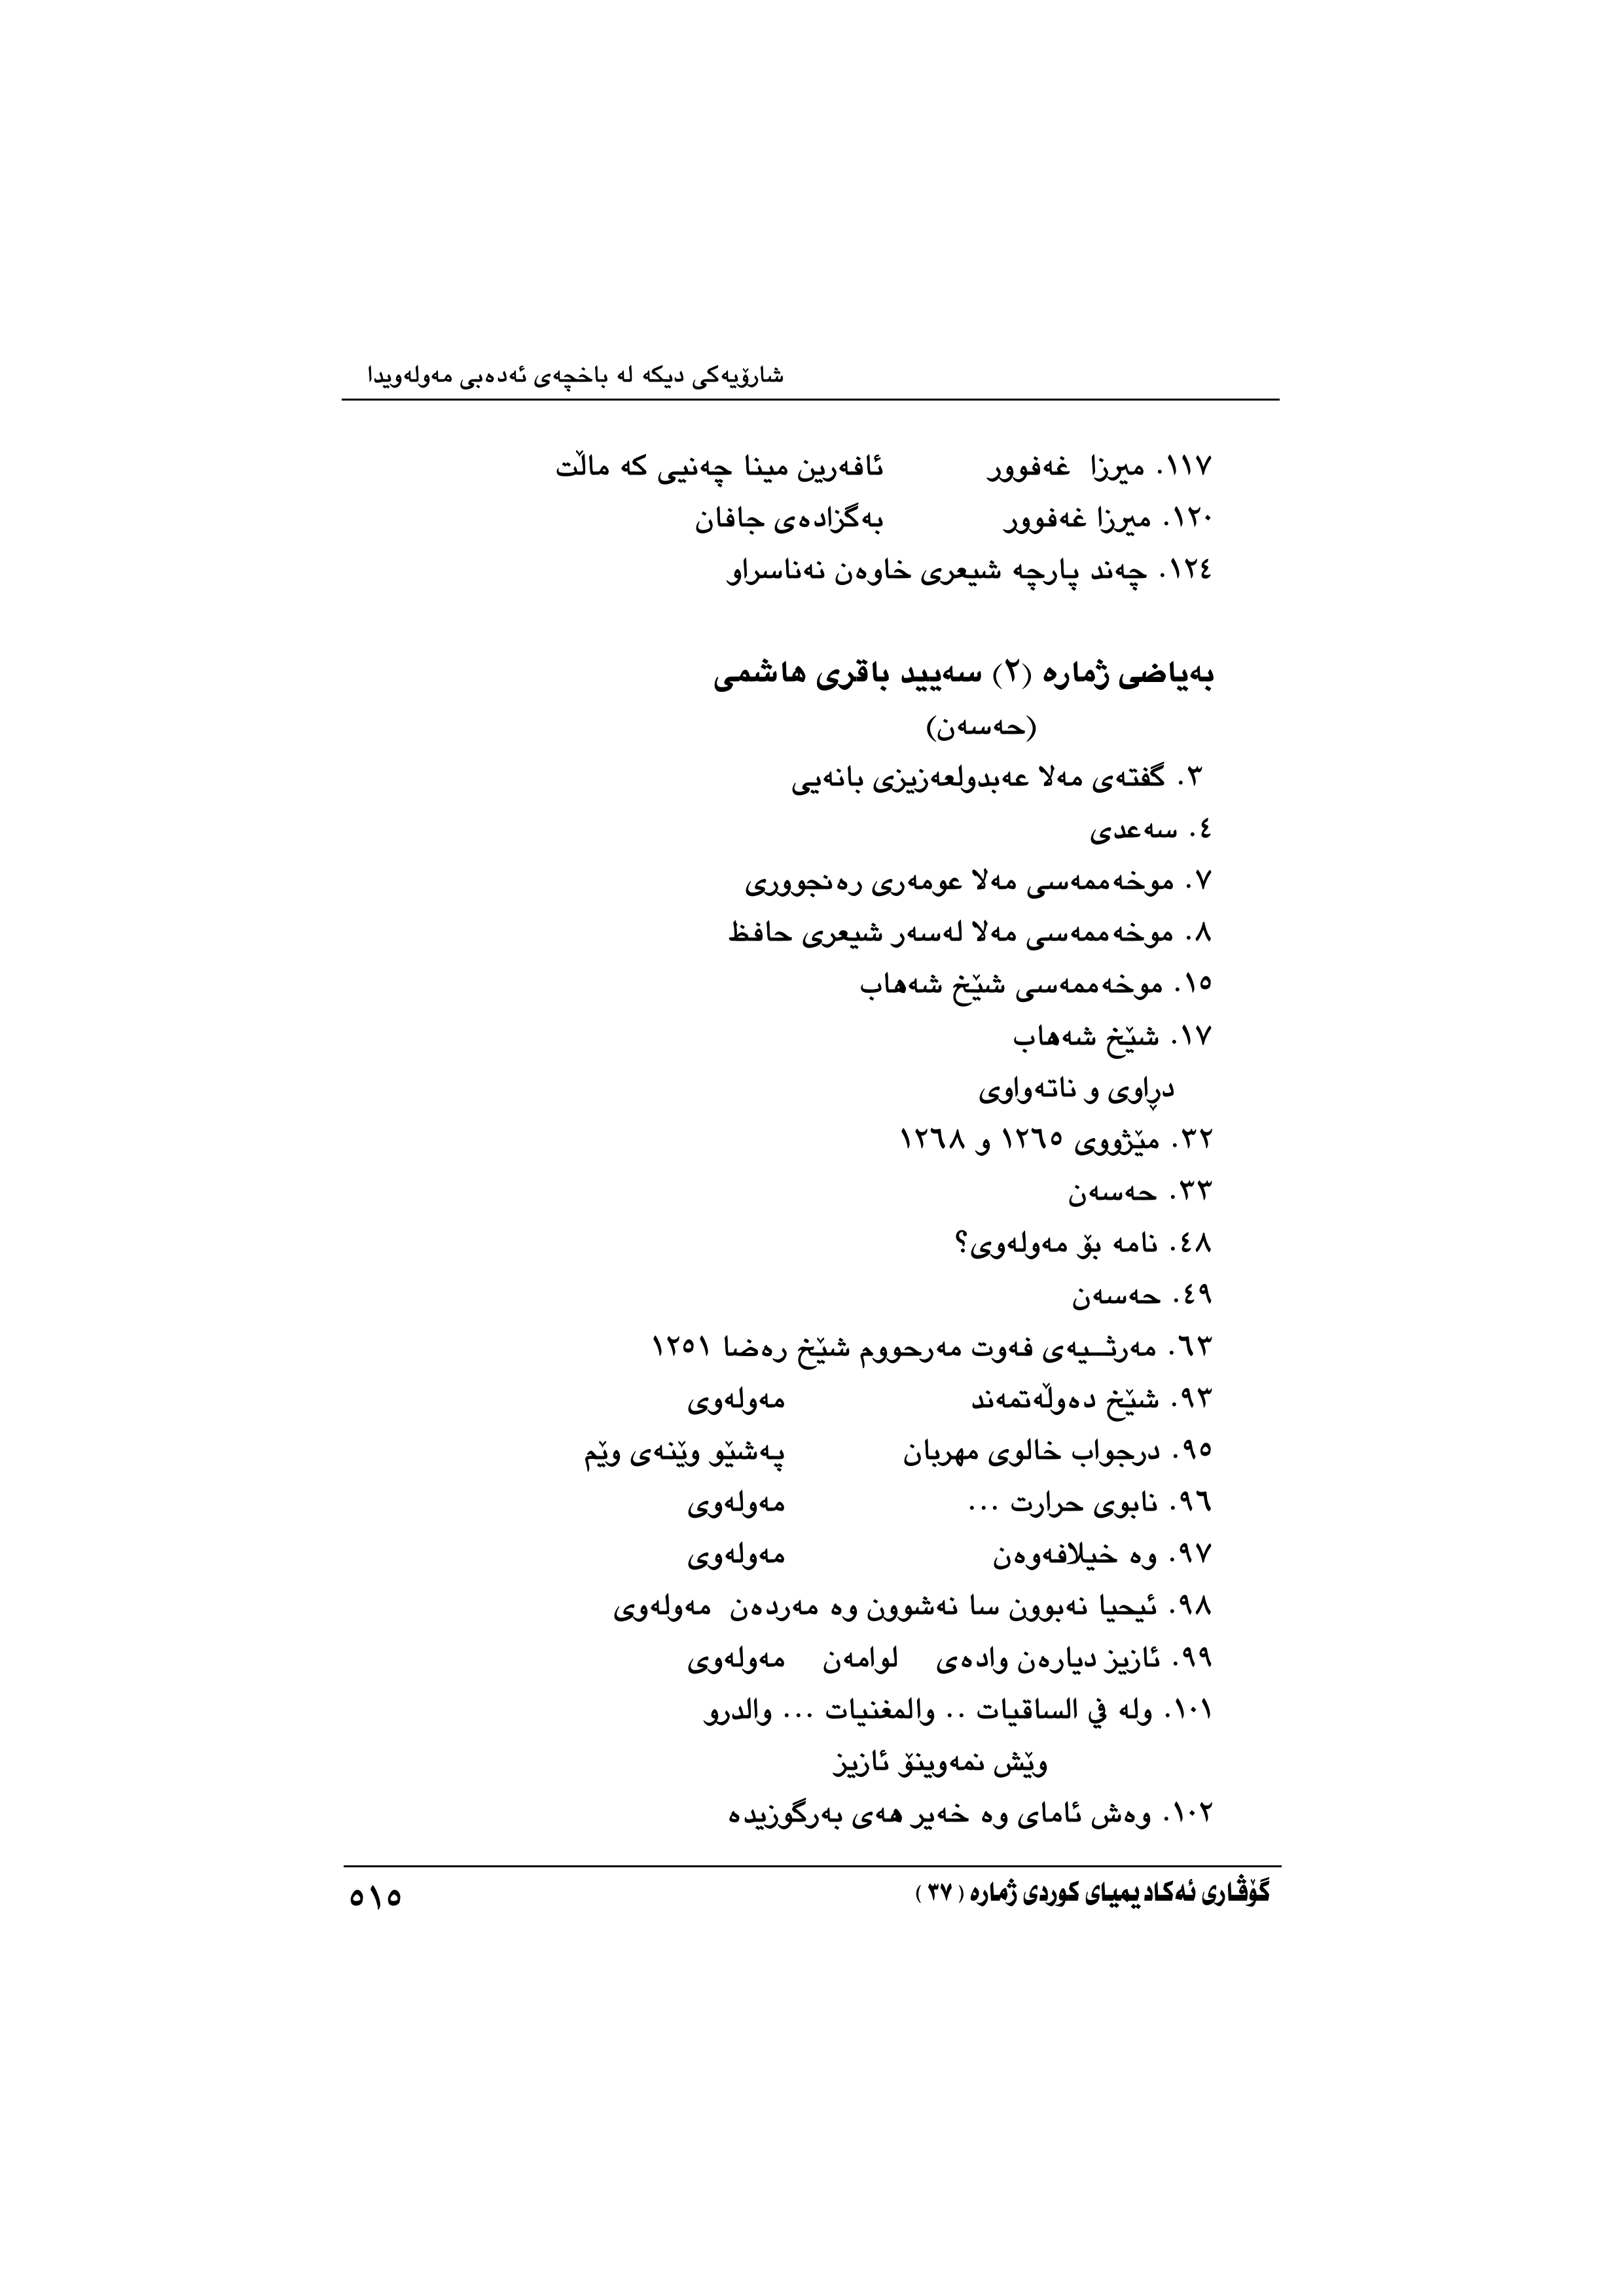 شارۆیەکی دیکە لە باخچەی ئەدەبی مەولەویدا
١١٧. میرزا غەفوور ئافەرین مینا چەنیی کە ماڵت
١٢٠. میرزا غەفوور بەگزادەی جافان
١٢٤. چەند پارچە شیعری خاوەن نەناسراو
بەیاضی ژمارە (٢) سەیید باقری هاشمی
(حەسەن)
٣. گفتەی مەلا عەبدولعەزیزی بانەیی
٤. سەعدی
٧. موخەممەسی مەلا عومەری رەنجووری
٨. موخەممەسی مەلا لەسەر شیعری حافظ
١٥. موخەممەسی شێخ شەهاب
١٧. شێخ شەهاب
دڕاوی و ناتەواوی
٣٢. مێژووی ١٢٦٥ و ١٢٦٨
٣٣. حەسەن
٤٨. نامە بۆ مەولەوی؟
٤٩. حەسەن
٦٣. مەرثـــیەی فەوت مەرحووم شێخ رەضا ١٢٥١
٩٣. شێخ دەوڵەتمەند مەولەوی
٩٥. درجواب خالوی مهربان پەشێو وێنەی وێم
٩٦. نابوی حرارت ... مەولەوی
٩٧. وە خیلافەوەن مەولەوی
٩٨. ئیحیا نەبوون سا نەشوون وە مەردەن مەولەوی
٩٩. ئازیز دیارەن وادەی لوامەن مەولەوی
١٠١. وله في الساقیات .. والمغنیات ... والدرو
وێش نمەوینۆ ئازیز
١٠٢. وەش ئامای وە خەیر هەی بەرگوزیدە
گۆڤاری ئەکادیمیای کوردی ژمارە ( ٣٧ ) ٥١٥